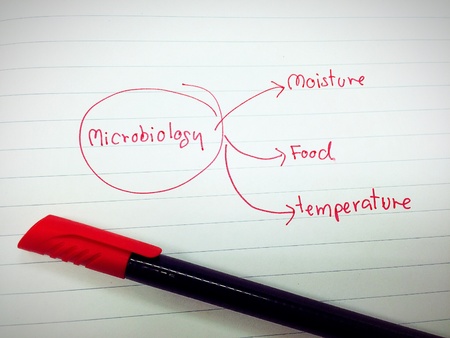 Moisture
Microbiology
Food
temperature